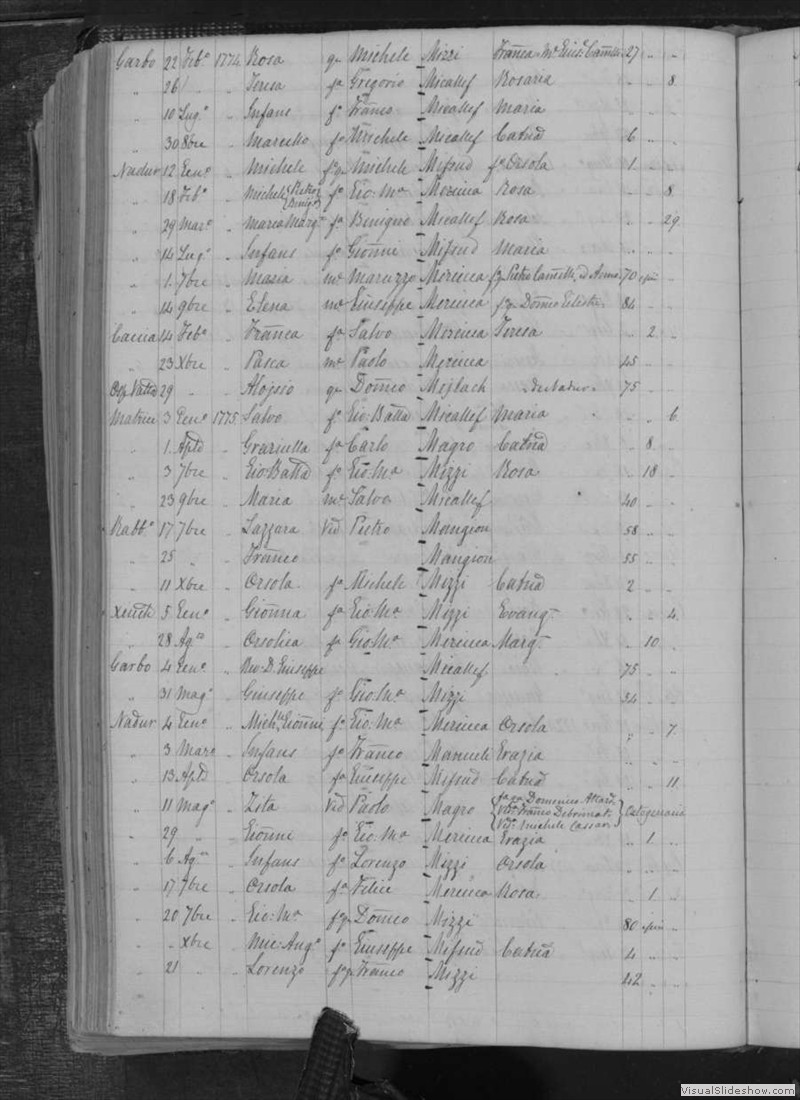 Garbo 22 Feb° 1774 Rosa qm Michele Mizzi Franca Mr Gius. Camill. 27 " "
" 26 " " Teresa fa Gregorio Micallef Rosaria " " 8
" 10 Lug° " Infans fo Franco Micallef Maria
" 30 8bre " Marcello fo Michele Micallef Catnd 6 " "
Nadur 12 Gen° " Michele Mifsud fa Orsola 1 " "
" 18 Feb° " Michel fo Gio: Ma Mercieca Rosa " " 8
" 29 Marz° " Maria Margta fa Benigno Micallef Rosa " " 29
" 14 Lug° " Infans fo Gionni Mifsud Maria
" 1 7bre " Maria mr Maruzzo Mercieca Pietro Camill. ed Anna 70
" 14 9bre " Elena mr Giuseppe Mercieca Domco 84
Caccia 14 Feb° " Franca fa Salvo Mercieca Teresa " 2 "
" 23 Xbre " Pasca mr Paolo Mercieca 45 " "
29 " " Alojsio qm Domco Mejlach 75 " "
Matrice 3 Gen° 1775 Salvo fo Gio Batta Micallef Maria " " 6
" 1 Aple " Graziulla fa Carlo Magro Catnd " 8 "
" 3 7bre " Gio: Batta fo Gio: Ma Mizzi Rosa " 18 "
" 23 9bre " Maria mr Salvo Micallef 40 " "
Rabt° 17 7bre " Lazzara Vid Pietro Mangion 58 " "
" 25 " " Franco Mangion 55 " "
" 11 Xbre " Orsola fa Michele Mizzi Catnd 2 " "
Xeuch 5 Gen° " Gionna fa Gio: Ma Mizzi Evang. " " 4
" 28 Ag° " Orsolica fa Gio: Ma Mercieca Margt " 10 "
Garbo 4 Gen° " Rev: D. Giuseppe Micallef 75 " "
" 31 Mag° " Giuseppe fo Gio: Ma Mizzi 34 " "
Nadur 4 Gen° " Michle Gionni fo Gio: Ma Mercieca Orsola " " 7
" 3 Marz° " Infans fo Franco Manuele Grazia
" 13 Aple " Orsola fa Giuseppe Mifsud Catnd " " 11
" 11 Mag° " Zita Vid Paolo Magro Domenico Attard
Vid. Franco Debrincat
Vid. Michele Cassar
" 29 " " Gionni fo Gio: Ma Mercieca Grazia " 1 "
" 6 Ag° " Infans fo Lorenzo Mizzi Orsola
" 17 7bre " Orsola fa Felice Mercieca Rosa " 1 "
" 20 7bre " Gio: Ma fo Domco Mizzi 80
" " Xbre " Mic: Ang° fo Giuseppe Mifsud Catnd 4 " "
" 21 " " Lorenzo Franco Mizzi 42 " "
VisualSlideshow.com